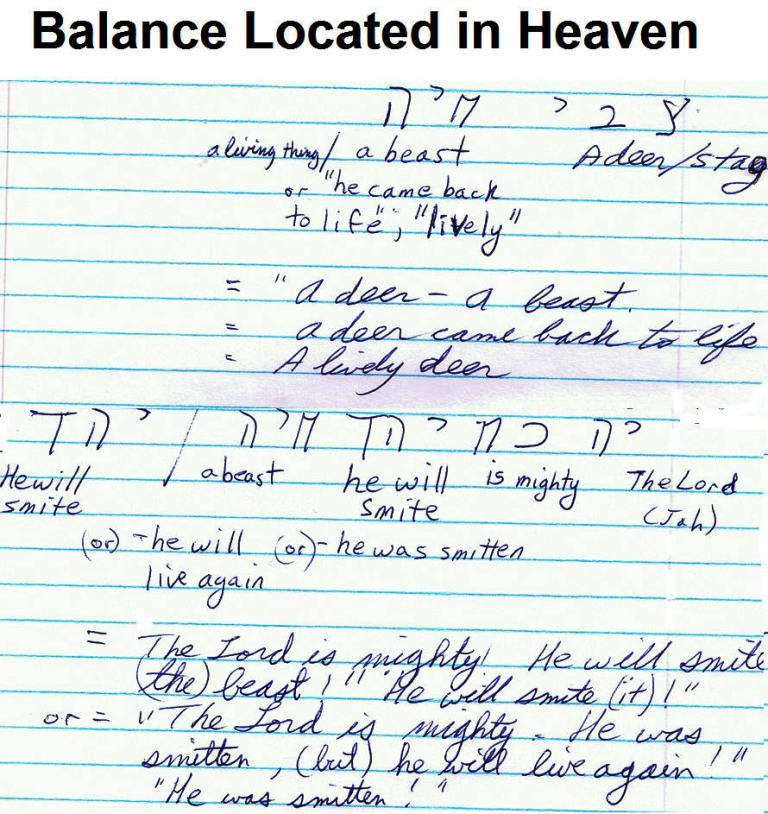 Balance Located in Heaven
צ ב י חיה
a living thing/ a beast A deer/stag
or "he came back
to life"; "lively"
= "A deer – a beast.
= a deer came back to life
= A lively deer
יה כח יהד חיה / יהד
He will a beast he will is mighty The Lord
smite smite (Jah)
(or) - he will (or) - he was smitten
live again
= The Lord is mighty! He will smite
(the) beast!" "He will smite (it)!"
or = "The Lord is mighty. He was
smitten, (but) he will live again!"
"He was smitten!"